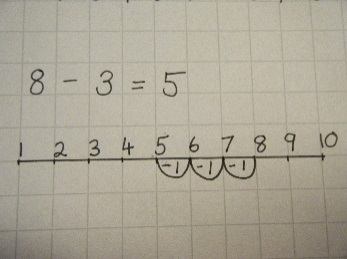 8 - 3 = 5
1 2 3 4 5 6 7 8 9 10
-1 -1 -1